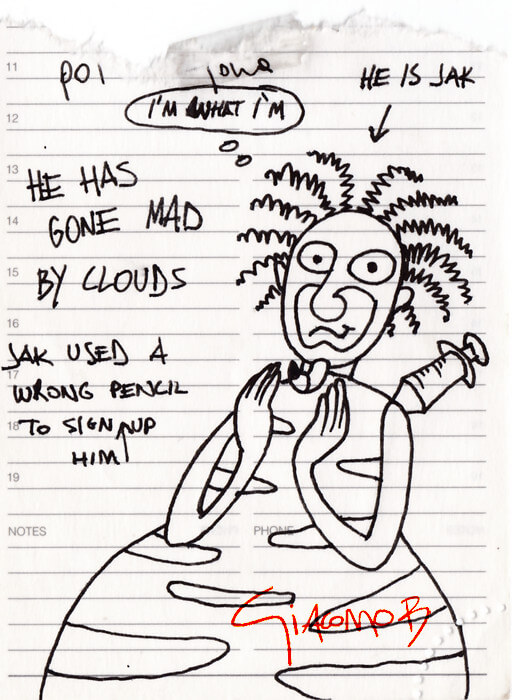 POI
HE IS JAK
I'M WHAT I'M
11
12
13
14
15
16
17
18
19
HE HAS
GONE MAD
BY CLOUDS
JAK USED A
WRONG PENCIL
TO SIGN UP
HIM
NOTES
PHONE
GIACOMO B